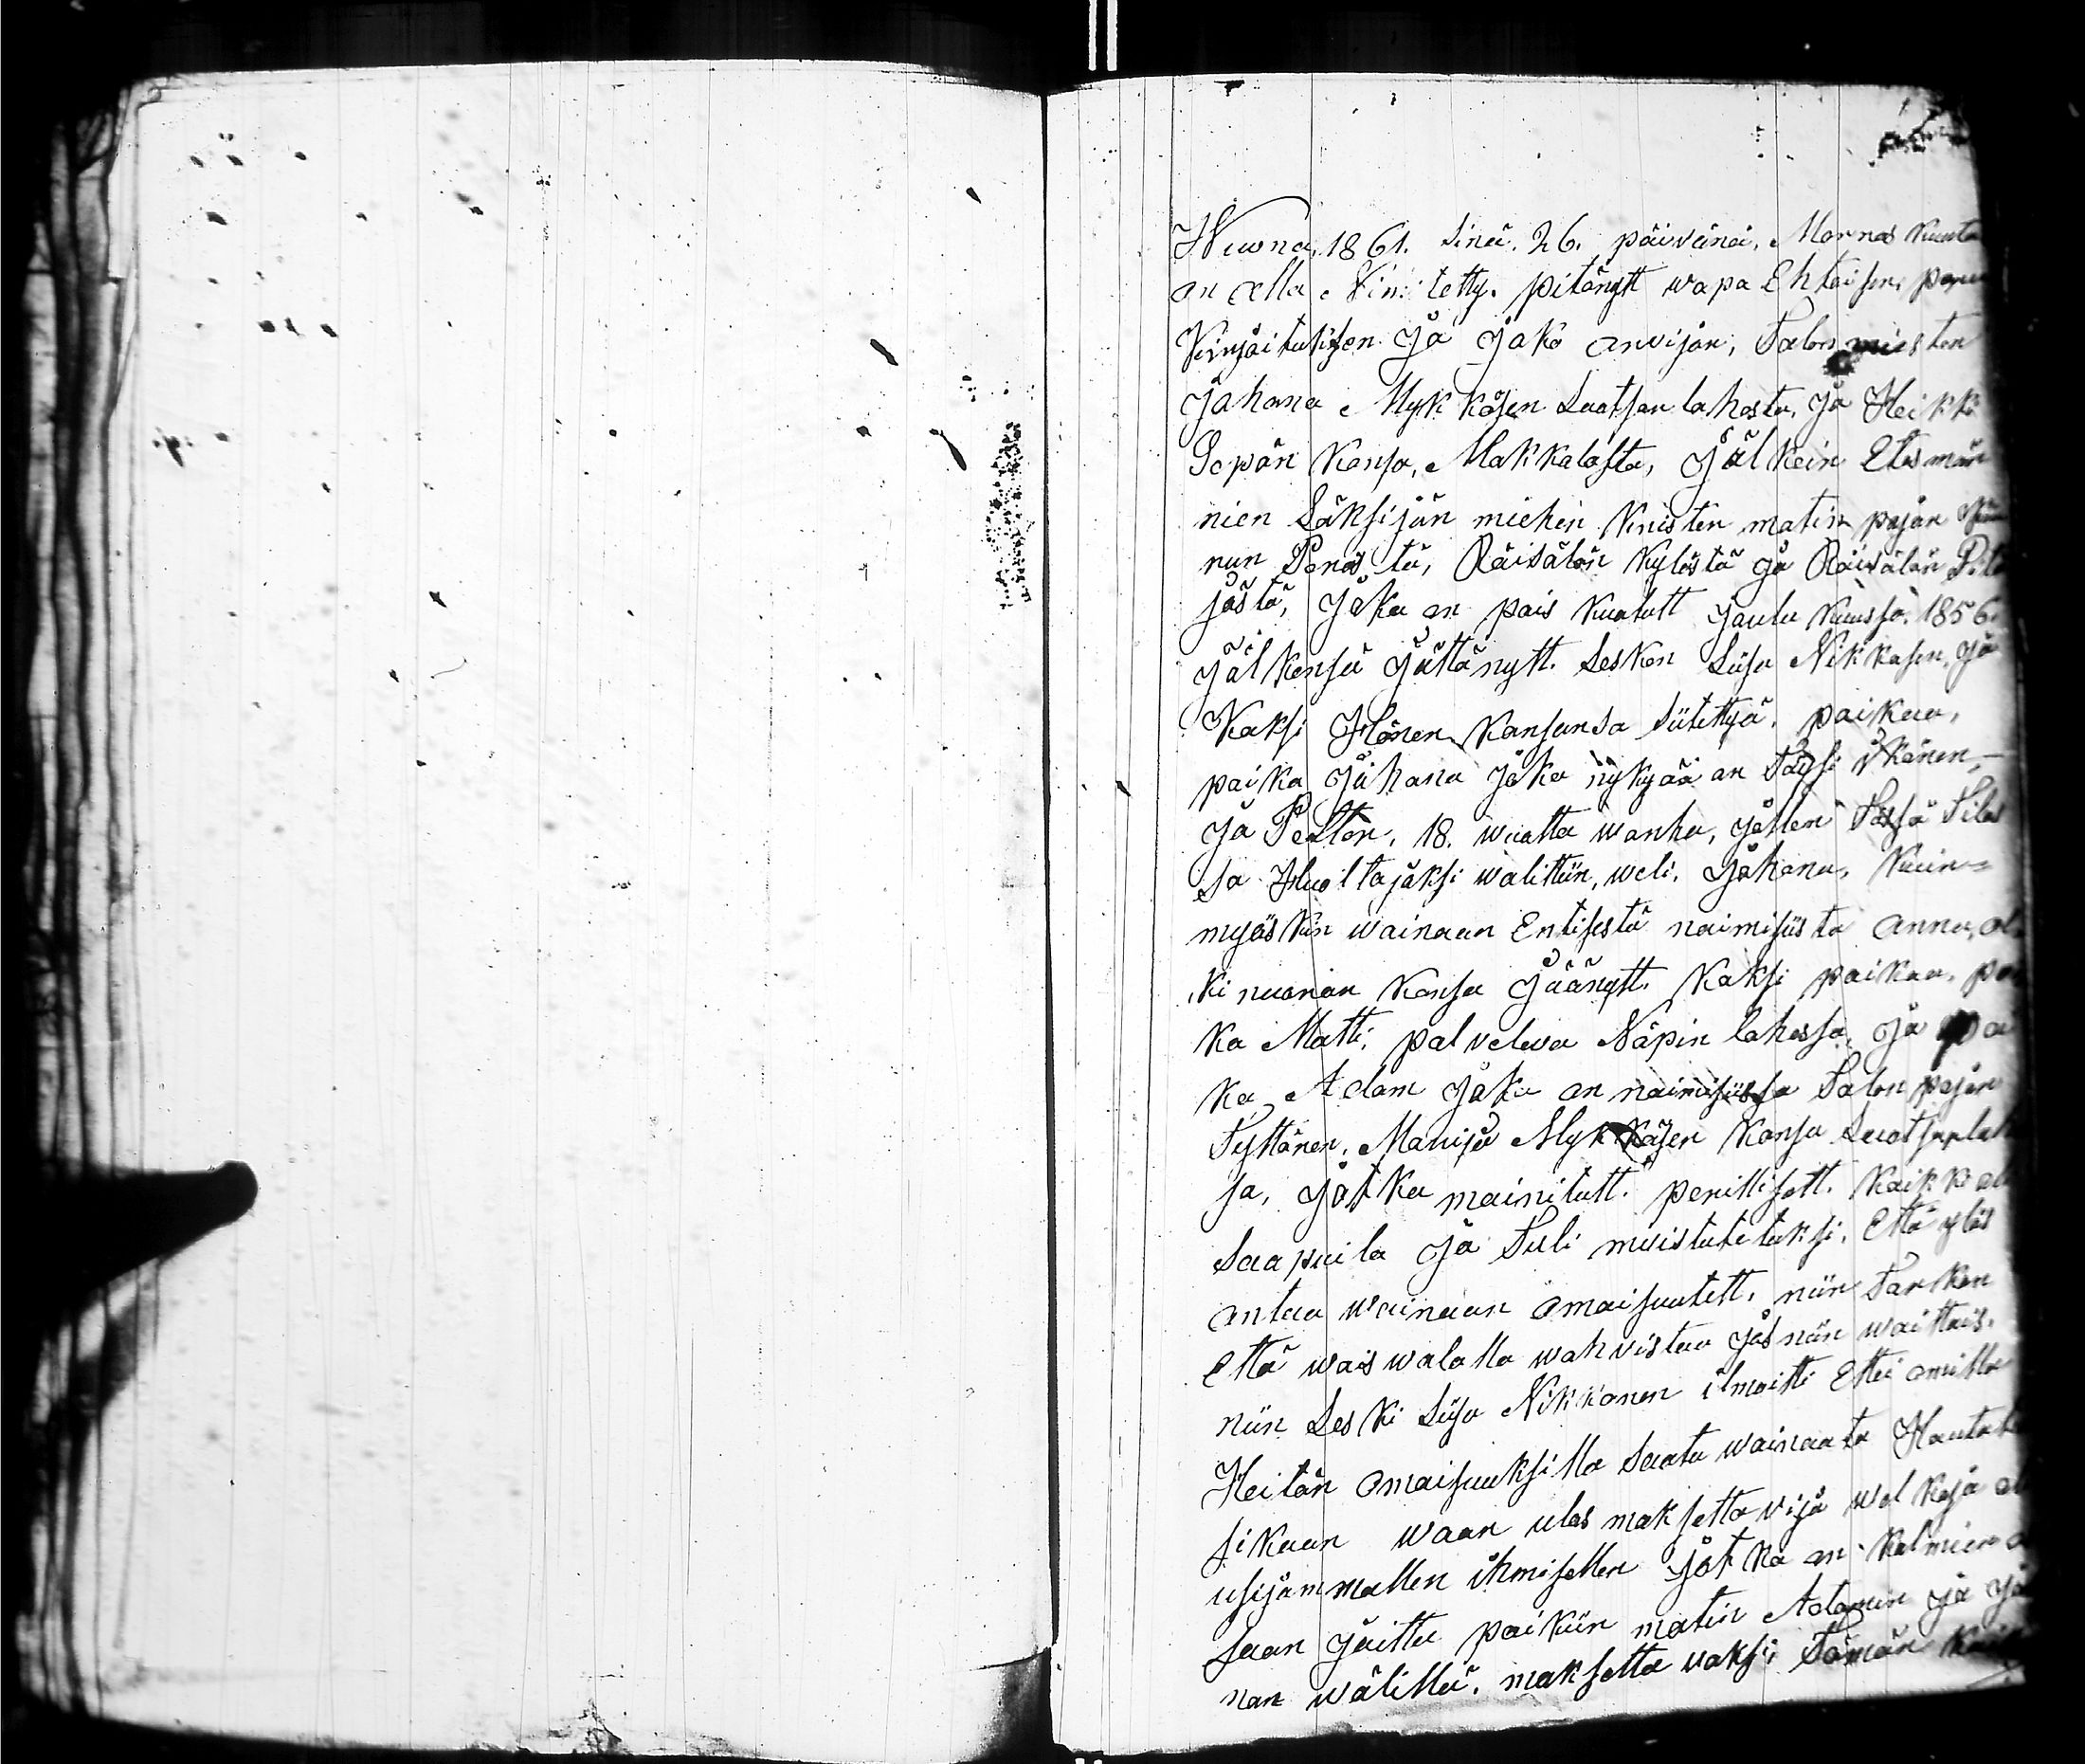 Wuona, 1861. sinä. 26. päivänä, Marras kuuta
on alla Nimitetty. pitänytt wapa Ehtoisen, perun
Kirjoituksen Ja Jako arvijon, Talon miesten
Johana Mykkösen Suotsan lahesta, Ja Heikki
Sopän Kansa, Makkalasta, Jälkein Etes män
nien Läksijän miehen Kristen matin pojan
nun Penos ta, Räisälän Kylästä ja Räisälän Pitä
jästä, Joka on pois kuolutt Joulu kuussa. 1856.
Jälkensä Jättänytt. Lesken Liisa Nikkasen, Ja
Kaksi Hänen Kansansa Siitettyä. poikaa,
poika Johana Joka nykyää on täysi ikänen,
Ja Petter, 18. wuotta wanha, Jollen Tässä Tilas
sa Huoltajaksi walittiin, weli. Johana, Kuin=
myöskin wainaan Entisestä naimisista Anna,
kinuanan Kansa Jäänytt. Kaksi poikaa, poi
ka Matti. palvelewa Näpin lahessa, Ja poi
ka Adam Joka on naimisissa Talon pojan
Tyttären, Marija Mykkäsen Kansa Suotsanlah
sa, Jotka mainitutt. perillisett. Kaikk oli
Saapuila Ja Tuli muistutetuksi, Että ylös
antaa wainaan omaisuutett, niin Tarken
Että wais walalla wahvistaa Jos niin waittais.
niin Leski Liisa Nikkonen ilmoitti Ettei omilla
Heitän omaisuuksilla Saatu wainaata Hautah
sikaan waan ulos maksettavija welkoja
usijammallen ihmisellen Jotka on kolmien
saan Jaittu poikiin matin Adamin ja Jo
nan wälillä. maksetta waksi Tämän